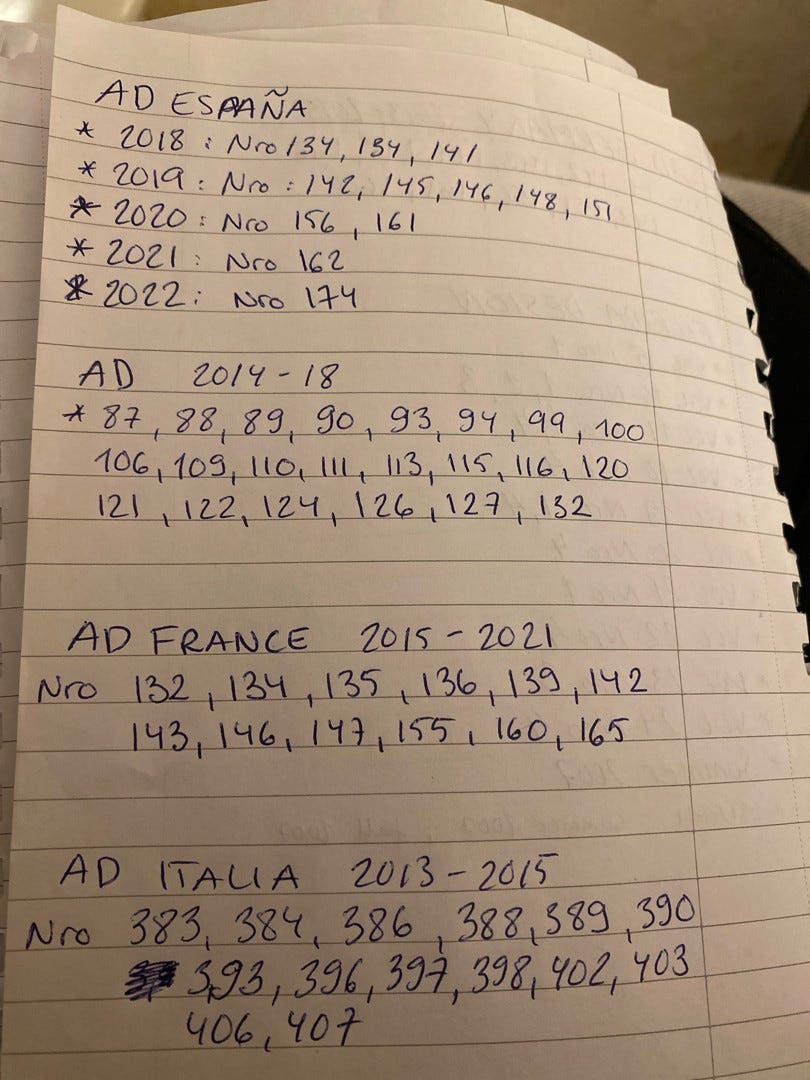 AD ESPAÑA
* 2018 : Nro 134, 134, 141
* 2019 : Nro : 142, 145, 146, 148, 151
* 2020 : Nro 156, 161
* 2021 : Nro 162
* 2022 : Nro 174
AD 2014-18
* 87, 88, 89, 90, 93, 94, 99, 100
106, 109, 110, 111, 113, 115, 116, 120
121, 122, 124, 126, 127, 132
AD FRANCE 2015-2021
Nro 132, 134, 135, 136, 139, 142
143, 146, 147, 155, 160, 165
AD ITALIA 2013-2015
Nro 383, 384, 386, 388, 389, 390
393, 396, 397, 398, 402, 403
406, 407